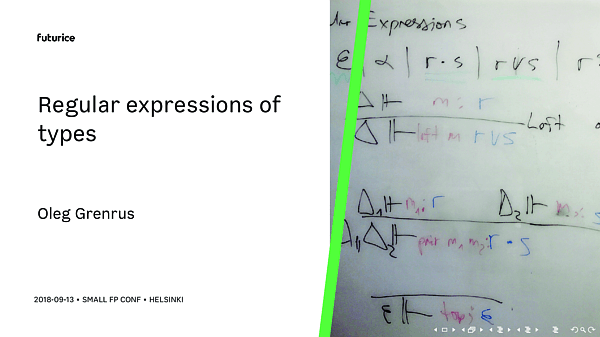 futurice
Regular expressions of
types
Oleg Grenrus
2018-09-13 • SMALL FP CONF • HELSINKI
Expressions
ε | α | r · s | r ∨ s |
Δ ⊩ m : r
Left
Δ ⊩ left m r ∨ s
Δ₁ ⊩ m₁ : r Δ₂ ⊩ m₂ : s
Δ₁, Δ₂ ⊩ pair m₁ m₂ : r · s
ε ⊩ : ε